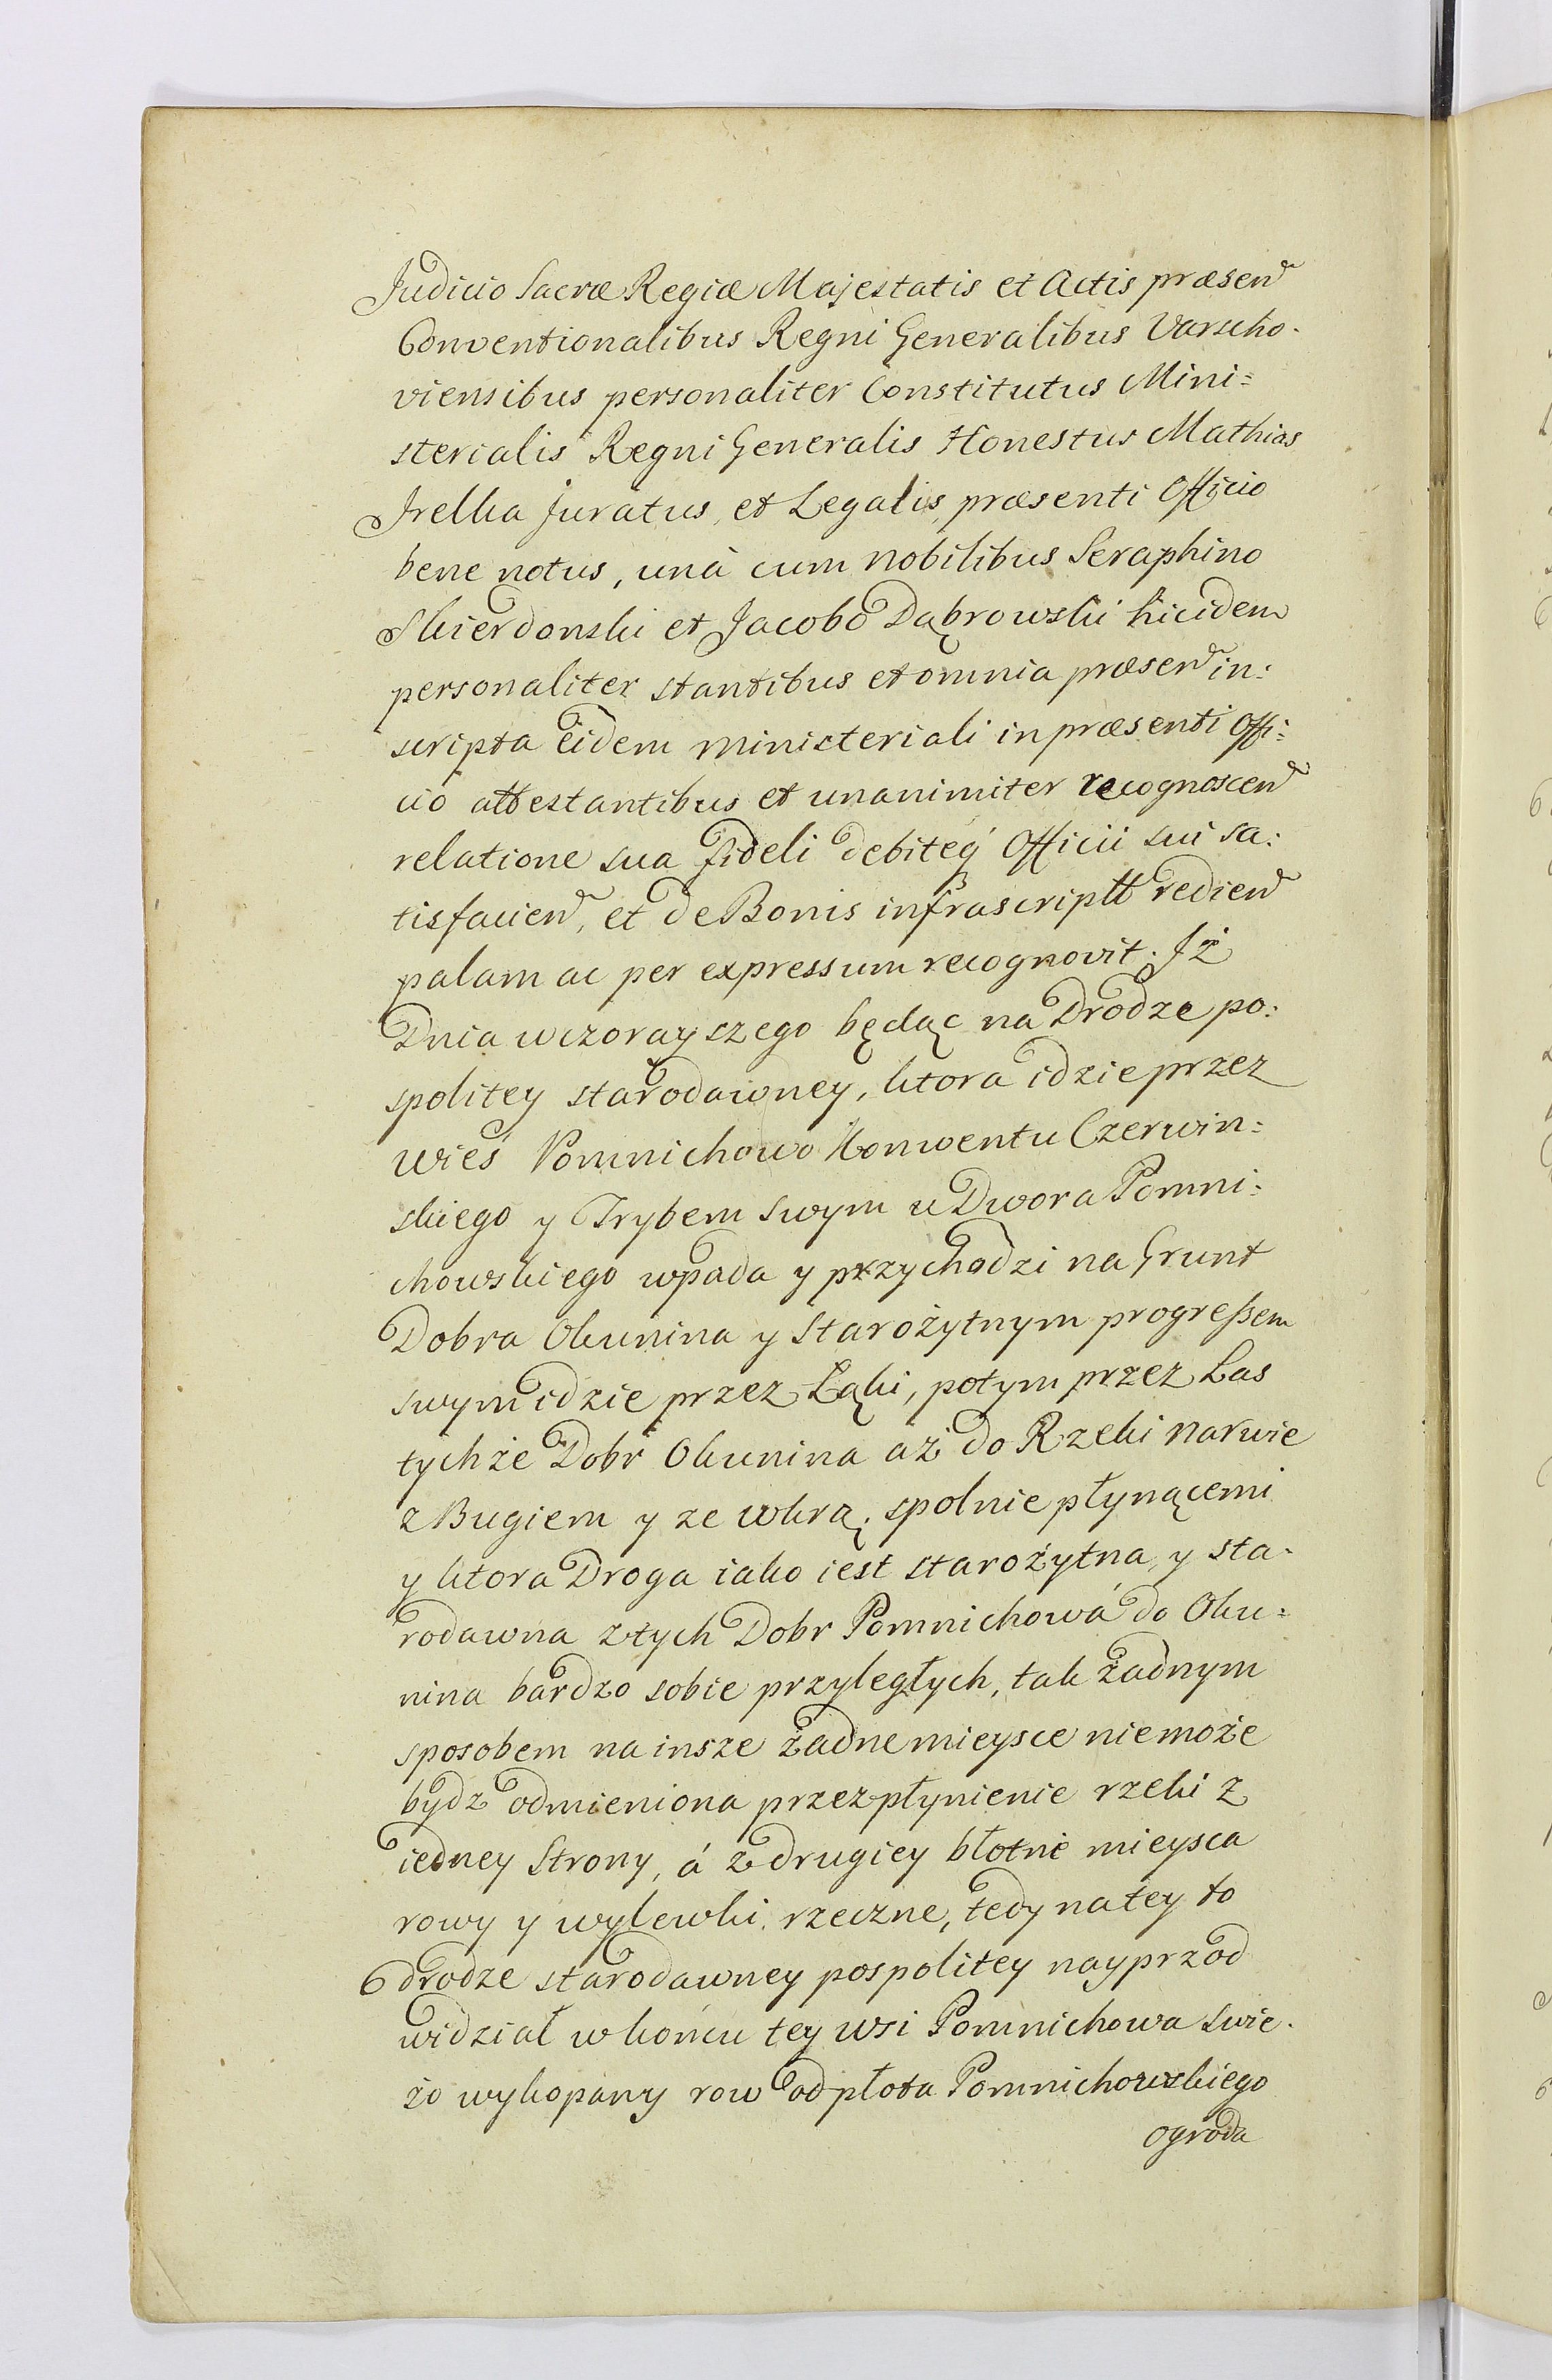 Judicio Sacræ Regiæ Majestatis et Actis præsen
Conventionalibus Regni Generalibus Varscho.
viensibus personaliter Constitutus Mini=
sterialis Regni Generalis Honestus Mathias
Irelka Juratus, et Legalis, præsenti Officio
bene notus, unà cum nobilibus Seraphino
Skierdonski et Jacobo Dąbrowski hicidem
personaliter stantibus et omnia præsen in:
scripta eidem ministeriali in præsenti Offi:
cio attestantibus et unanimiter recognoscen
relatione sua fideli debiteq́ Officii sui sa:
tisfacien, et de Bonis infrascriptt redien
palam ac per expressum recognovit. Iż
Dnia wczorayszego będąc na Drodze po:
spolitey starodawney, ktora idzie przez
wieś Pomnichowo Konwentu Czerwin:
skiego y Trybem swym u Dwora Pomni:
chowskiego wpada y przychodzi na Grunt
Dobra Okunina y Starożytnym progressem
swym idzie przez Łąki, potym przez Las
tychże Dobr Okunina aż do Rzeki Narwie
z Bugiem y ze Wkrą, spolnie płynącemi
y ktora Droga iako iest starożytna, y sta-
rodawna z tych Dobr Pomnichowá do Oku=
nina bardzo sobie przyległych, tak żadnym
sposobem na insze żadne mieysce nie może
bydz odmieniona przez płynienie rzeki z
iedney Strony, á z drugiey błotne mieysca
rowy y wylewki rzeczne, tedy na tey to
drodze starodawney pospolitey nayprzod
widział w końcu tey wsi Pomnichowa swie.
żo wykopany row od płota Pomnichowskiego
ogroda